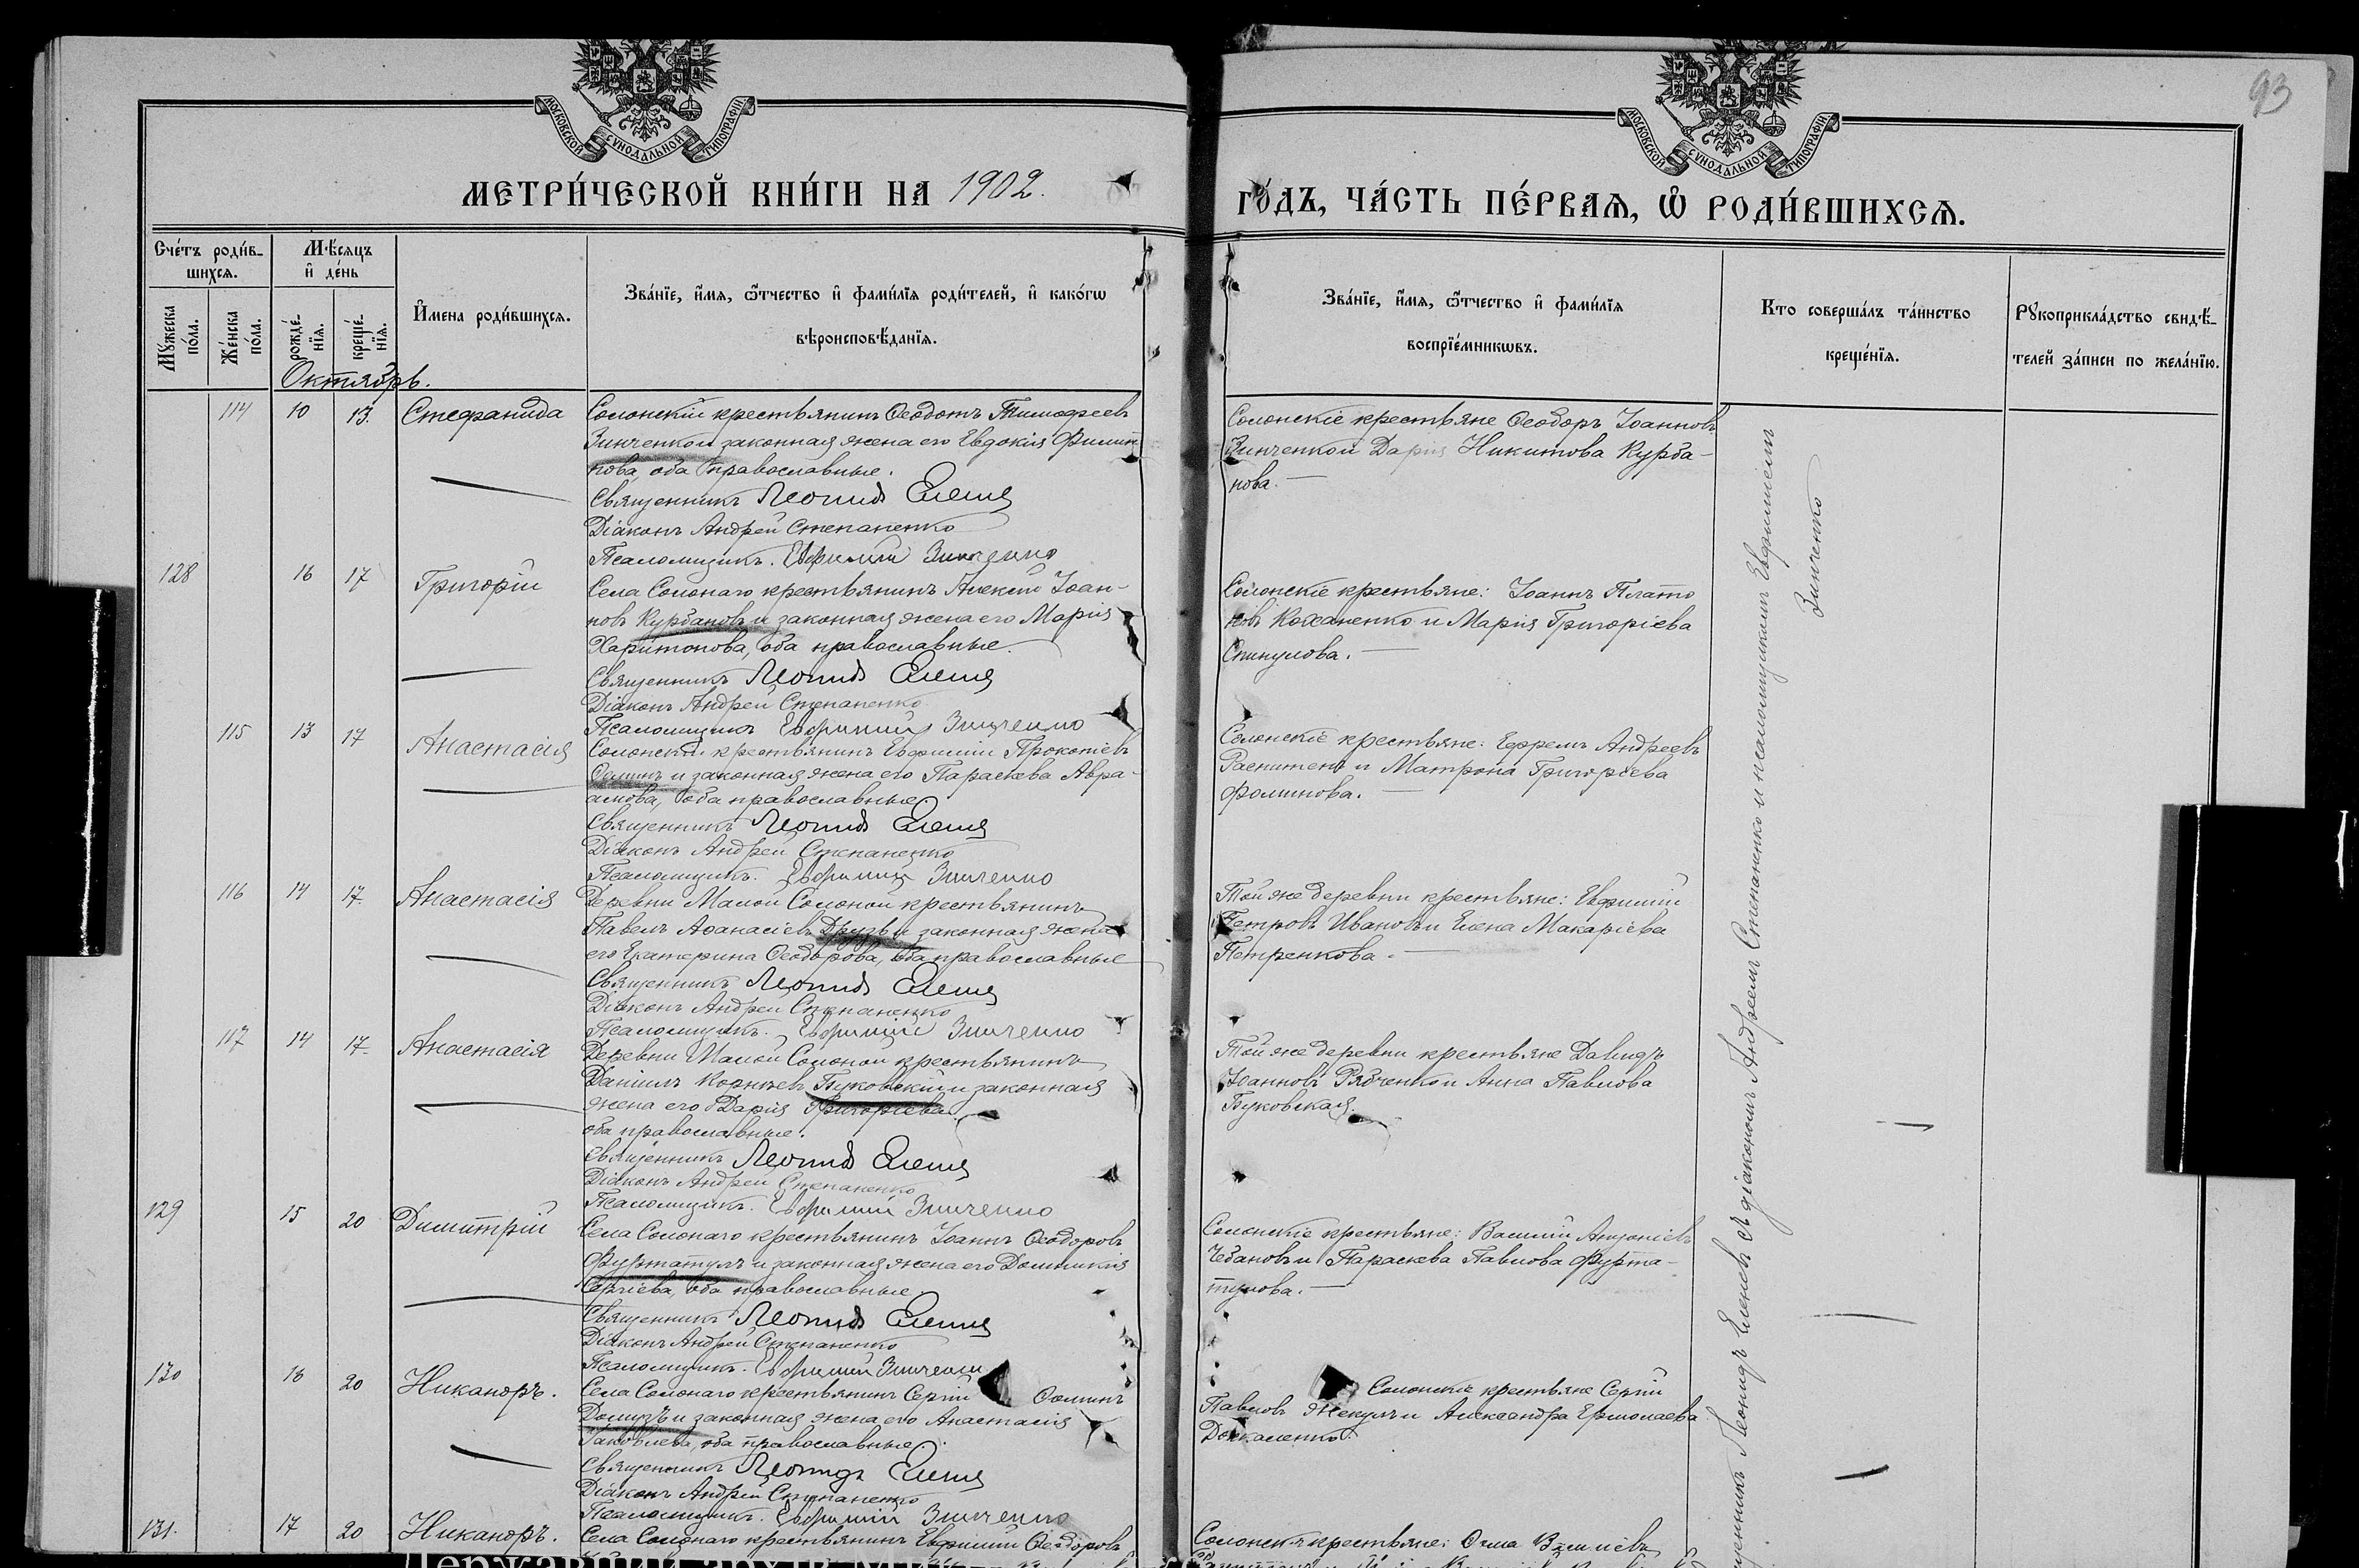 93
МОСКОВСКОЙ СУНОДАЛЬНОЙ ТИПОГРАФІИ
МОСКОВСКОЙ СУНОДАЛЬНОЙ ТИПОГРАФІИ
МЕТРИ́ЧЕСКОЙ КНИ́ГИ НА 1902.
ГО́ДЪ, ЧА́СТЬ ПЕ́РВАѦ, Ѡ҆ РОДИ́ВШИХСѦ.
Сче́тъ роди́в-
шихсѧ.
Мꙋ́жеска по́ла.
Же́нска по́ла.
Мѣ́сяцъ
и҆ де́нь
рожде́-
нїѧ.
креще́-
нїѧ.
И҆́мена роди́вшихсѧ.
Зва́нїе, и҆́мѧ, ѻ҆́тчество и҆ фами́лїѧ роди́телей, и҆ како́гѡ
вѣроисповѣ́данїѧ.
Зва́нїе, и҆́мѧ, ѻ҆́тчество и҆ фами́лїѧ
воспрїе́мникѡвъ.
Кто соверша́лъ та́инство
креще́нїѧ.
Рꙋкоприкла́дство свидѣ́-
телей за́писи по жела́нїю.
Октябрь.
114 10 13. Стефанида
Солонскій крестьянинъ Ѳеодотъ Тимофеевъ
Зинченко и законная жена его Евдокія Филип
пова, оба православные.
Священникъ Леонидъ
Діаконъ Андрей Степаненко
Псаломщикъ. Евфимій Зинченко
Солонскіе крестьяне Ѳеодоръ Іоанновъ
Зинченко и Дарія Никитова Курба-
нова.
128 16 17 Григорій
Села Солонаго крестьянинъ Алексій Іоан-
новъ Курбановъ и законная жена его Марія
Харитонова, оба православные.
Священникъ Леонидъ
Діаконъ Андрей Степаненко
Псаломщикъ Евфимій Зинченко
Солонскіе крестьяне: Іоаннъ Плато
новъ Коханенко и Марія Григоріева
115 13 17 Анастасія
Солонскій крестьянинъ Евфимій Прокопіевъ
и законная жена его Параскева Авра-
амова, оба православные
Священникъ Леонидъ
Діаконъ Андрей Степаненко
Псаломщикъ. Евфимій Зинченко
Солонскіе крестьяне: Ефремъ Андреевъ
и Матрона Григоріева
Фоминова.
116 14 17. Анастасія
Деревни Малой Солоной крестьянинъ
Павелъ Аѳанасіевъ Друзь и законная жена
его Екатерина Ѳеодорова, оба православные
Священникъ Леонидъ
Діаконъ Андрей Степаненко
Псаломщикъ. Евфимій Зинченко
Той же деревни крестьяне: Евфимій
Петровъ Ивановъ и Елена Макаріева
Петренкова.
117 14 17. Анастасія
Деревни Малой Солоной крестьянинъ
Даніилъ Корнѣевъ Буковскій и законная
жена его Дарія Григоріева
оба православные.
Священникъ Леонидъ
Діаконъ Андрей Степаненко
Псаломщикъ. Евфимій Зинченко
Той же деревни крестьяне Давидъ
Іоанновъ Рябченко и Анна Павлова
Буковская.
129 15 20 Димитрій
Села Солонаго крестьянинъ Іоаннъ Ѳеодоровъ
Фуртатулъ и законная жена его Домникія
Сергіева, оба православные.
Священникъ Леонидъ
Діаконъ Андрей Степаненко
Псаломщикъ. Евфимій Зинченко
Солонскіе крестьяне: Василій Антоніевъ
Чебановъ и Параскева Павлова Фурта-
тулова.
130 16 20 Никаноръ.
Села Солонаго крестьянинъ Сергій Ѳоминъ
и законная жена его Анастасія
Іаковлева, оба православные.
Священникъ Леонидъ
Діаконъ Андрей Степаненко
Псаломщикъ. Евфимій Зинченко
Солонскіе крестьяне Сергій
Павловъ Жекулъ и Александра Ермолаева
131. 17 20 Никаноръ.
Села Солонаго крестьянинъ Евфимій Ѳеодоровъ
Солонскіе крестьяне: Ѳома
Священникъ Леонидъ съ діакономъ Андреемъ Степаненко и псаломщикомъ Евфиміемъ
Зинченко